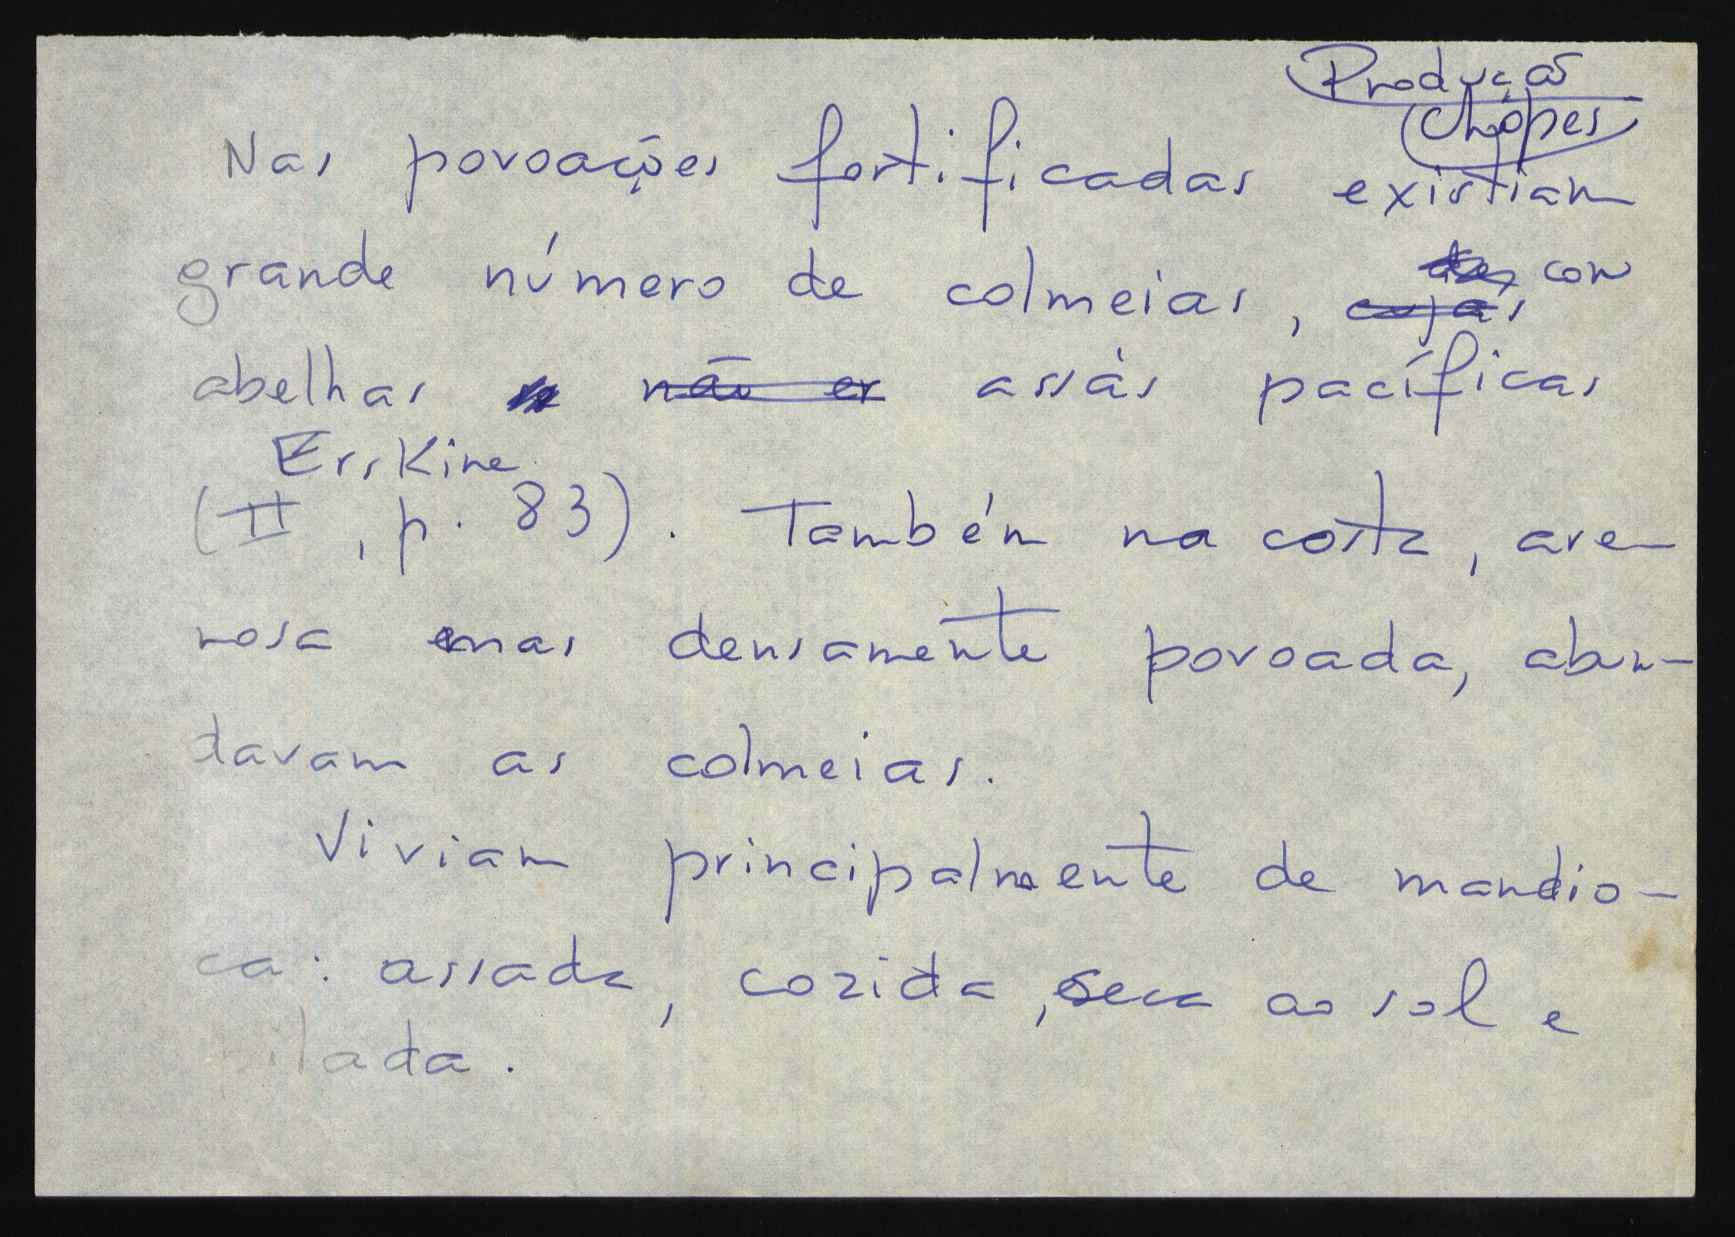 Produção
Chópes
Nas povoações fortificadas existiam
grande número de colmeias, cujas com
abelhas não er assás pacíficas
Erskine
(II, p. 83). Também na costa, are
nosa mas densamente povoada, abun-
davam as colmeias.
Viviam principalmente de mandio-
ca: assada, cozida, seca ao sol e